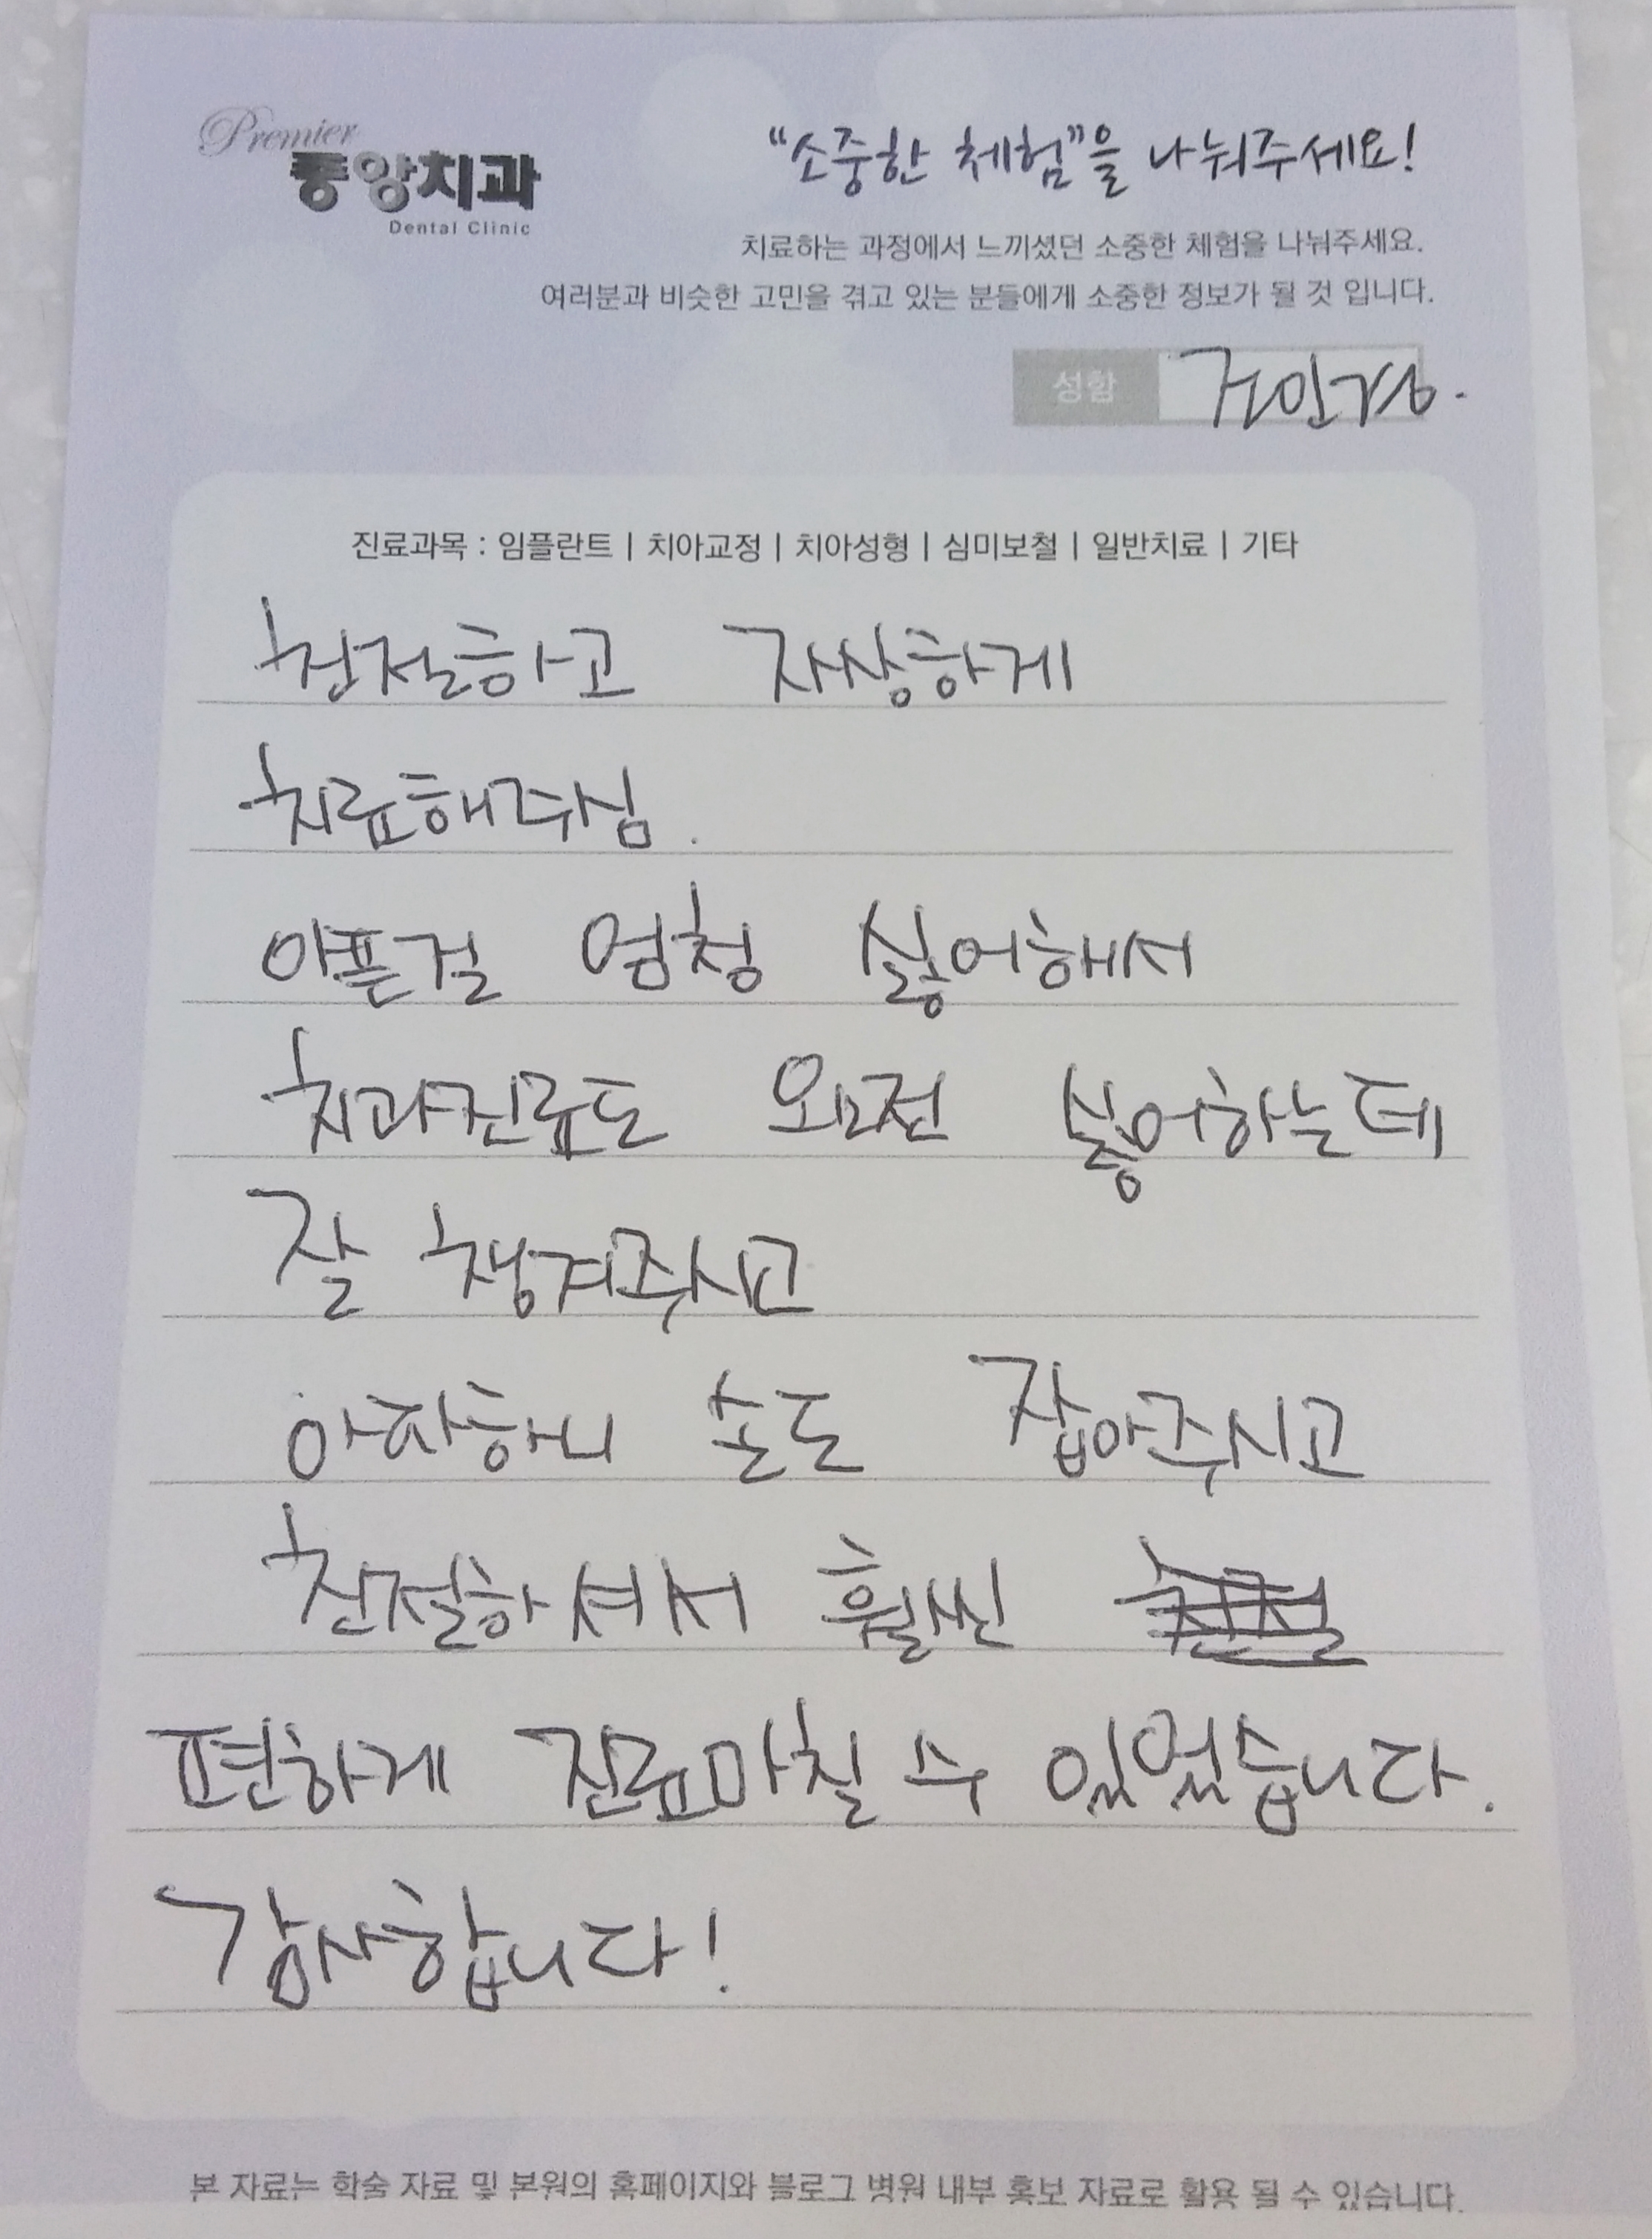 Premier
중앙치과
Dental Clinic
"소중한 체험"을 나눠주세요!
치료하는 과정에서 느끼셨던 소중한 체험을 나눠주세요.
여러분과 비슷한 고민을 겪고 있는 분들에게 소중한 정보가 될 것 입니다.
성함
진료과목 : 임플란트 | 치아교정 | 치아성형 | 심미보철 | 일반치료 | 기타
친절하고 자상하게
치료해주심.
아픈걸 엄청 싫어해서
치과진료도 완전 싫어하는데
잘 챙겨주시고
아파하니 손도 잡아주시고
친절하셔서 훨씬
편하게 진료마칠 수 있었습니다.
감사합니다!
본 자료는 학술 자료 및 본원의 홈페이지와 블로그 병원 내부 홍보 자료로 활용 될 수 있습니다.